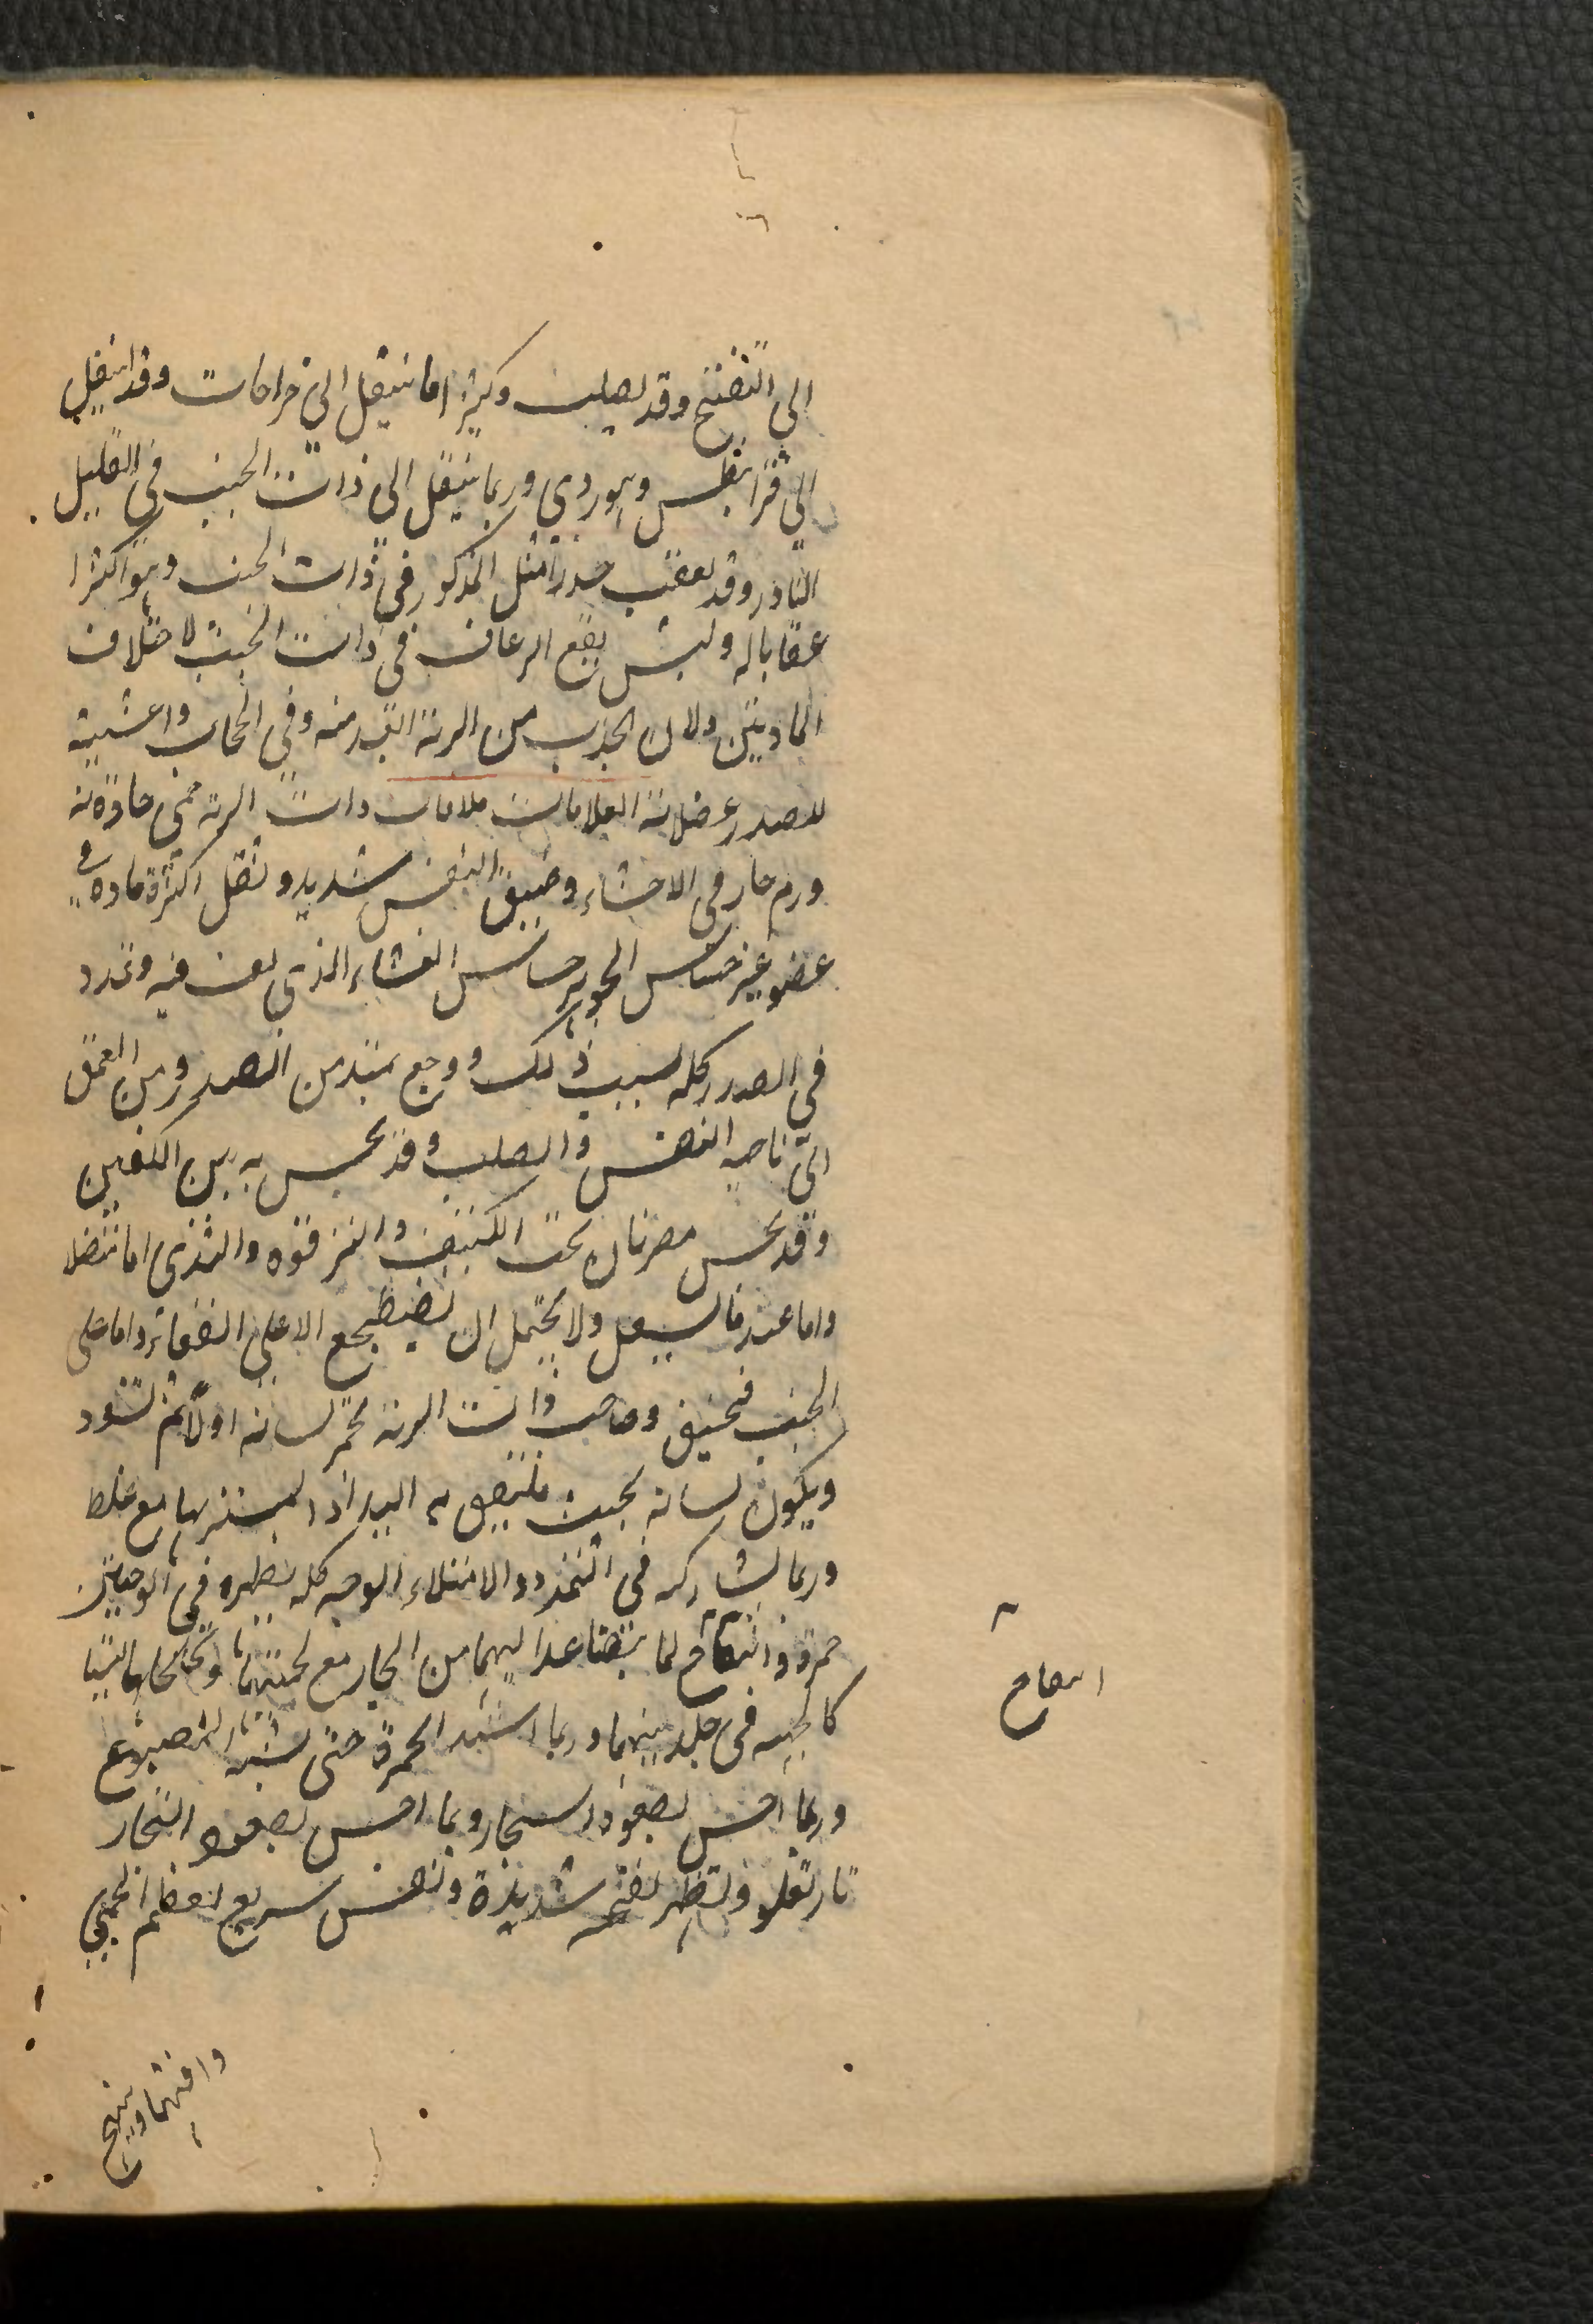 الى التفتح وقد يصلب وكثيرا ما ينتقل الى خراجات وقد ينتقل
الى قرانيطس وهو ردي وربما ينتقل الى ذات الجنب في القليل
النادر وقد يعقب خدرا مثل المذكور في ذات الجنب وهو اكثرا
عقابا له وليس يقع الرعاف في ذات الجنب لاختلاف
المادتين ولان الجذب من الرئة ابعد منه وفي الحجاب واغشية
الصدر وعضلاته العلامات علامات ذات الرئة حمى حادة لانه
ورم حار في الاحشاء وضيق النفس شديد وثقل لكثرة مادة في
عضو غير حساس الجوهر حساس الغشاء الذي لف فيه وتمدد
في الصدر كله بسبب ذلك ووجع يمتد من الصدر ومن العمق
الى ناحيه القص والصلب وقد يحس به بين الكتفين
وقد يحس ضربان تحت الكتف والترقوه والثدي اما متصلا
واما عندما يسعل ولا يحتمل ان يضطجع الا على القفا واما على
الجنب فيختنق وصاحب ذات الرئة يحمر لسانه اولا ثم يسود
ويكون لسانه بحيث يلتصق به اليد اذا لمسته بها مع غلظ
وربما يشاركه في التمدد والامتلاء الوجه كله ويظهر في الوجنتين
حمرة وانتفاخ لما يتصاعد اليهما من البخار مع لحميتهما وتخلخلهما ليستا
كالجبهه في جلديتهما وربما اشتد الحمرة حتى يشبه المصبوغ
وربما احس بصعود البخار وربما احس بصعود البخار
نار تعلو ويظهر نفخه شديدة ونفس سريع لعظم الحمى
انتفاخ
وافتهما ويهيج